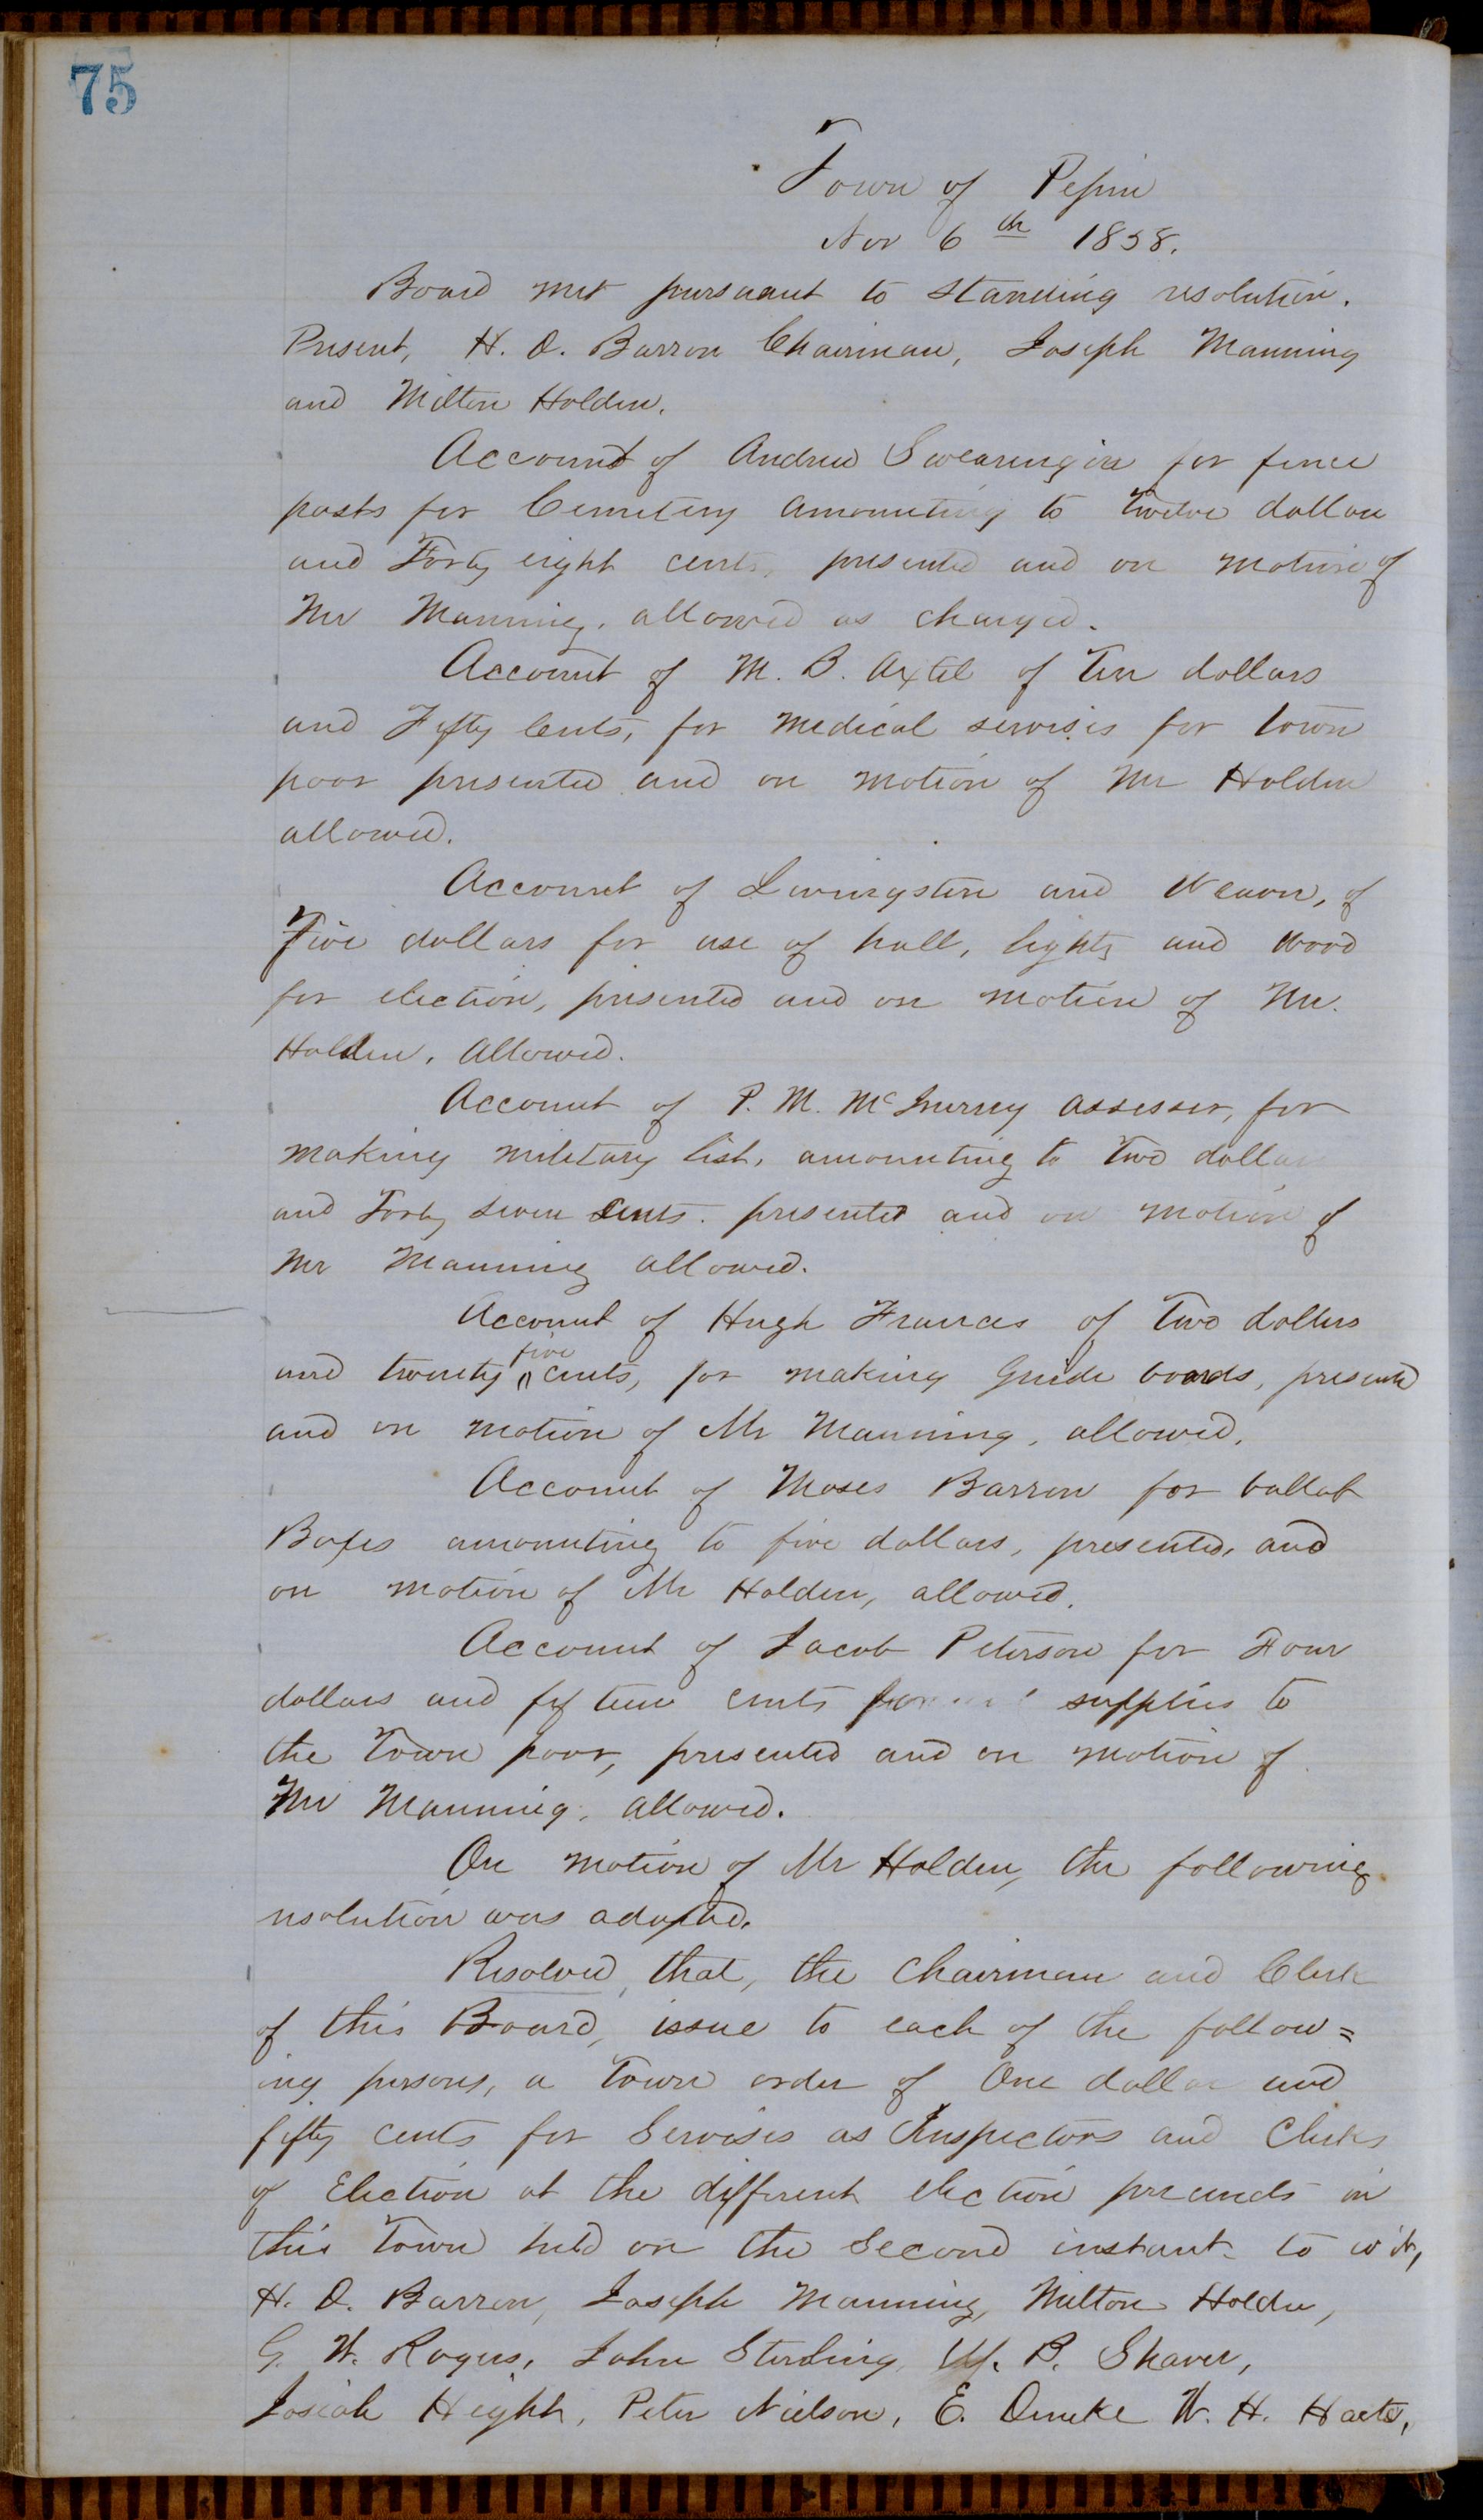 75
Town of Pepin
Nov 6th 1858.
Board met pursuant to standing resolution.
Present, H. D. Barron Chairman, Joseph Manning
and Milton Holden.
Account of Andrew Swearingin for fence
posts for Cemetery amounting to twelve dollars
and Forty eight cents, presented and on motion of
Mr Manning, allowed as charged.
Account of M. B. Axtil of Ten dollars
and Fifty Cents, for Medical servises for town
poor presented and on motion of Mr Holden
allowed.
Account of Livingston and Weaver, of
Five dollars for use of hall, lights and wood
for election, presented and on motion of Mr.
Holden, allowed.
Account of P. M. Assessor, for
making military list, amounting to Two dollars
and Forty seven Cents. presented and on motion of
Mr Manning allowed.
Account of Hugh Frances of Two dollars
and twenty five cents, for making Guide boards, presented
and on motion of Mr Manning, allowed.
Account of Moses Barron for ballot
Boxes amounting to five dollars, presented, and
on motion of Mr Holden, allowed.
Account of Jacob Peterson for Four
dollars and fifteen cents for supplies to
the Town poor, presented and on motion of
Mr Manning, allowed.
On motion of Mr Holden, the following
resolution was adopted.
Resolved, that, the Chairman and Clerk
of this Board, issue to each of the follow=
ing persons, a Town order of One dollar and
fifty cents for Servises as Inspectors and Clerks
of Election at the different election precincts in
this Town held on the Second instant- to wit,
H. D. Barron, Joseph Manning, Milton Holden,
G. W. Rogers, John Sterling, W. B. Shaver,
Josiah Height, Peter Nielson, E. W. H.